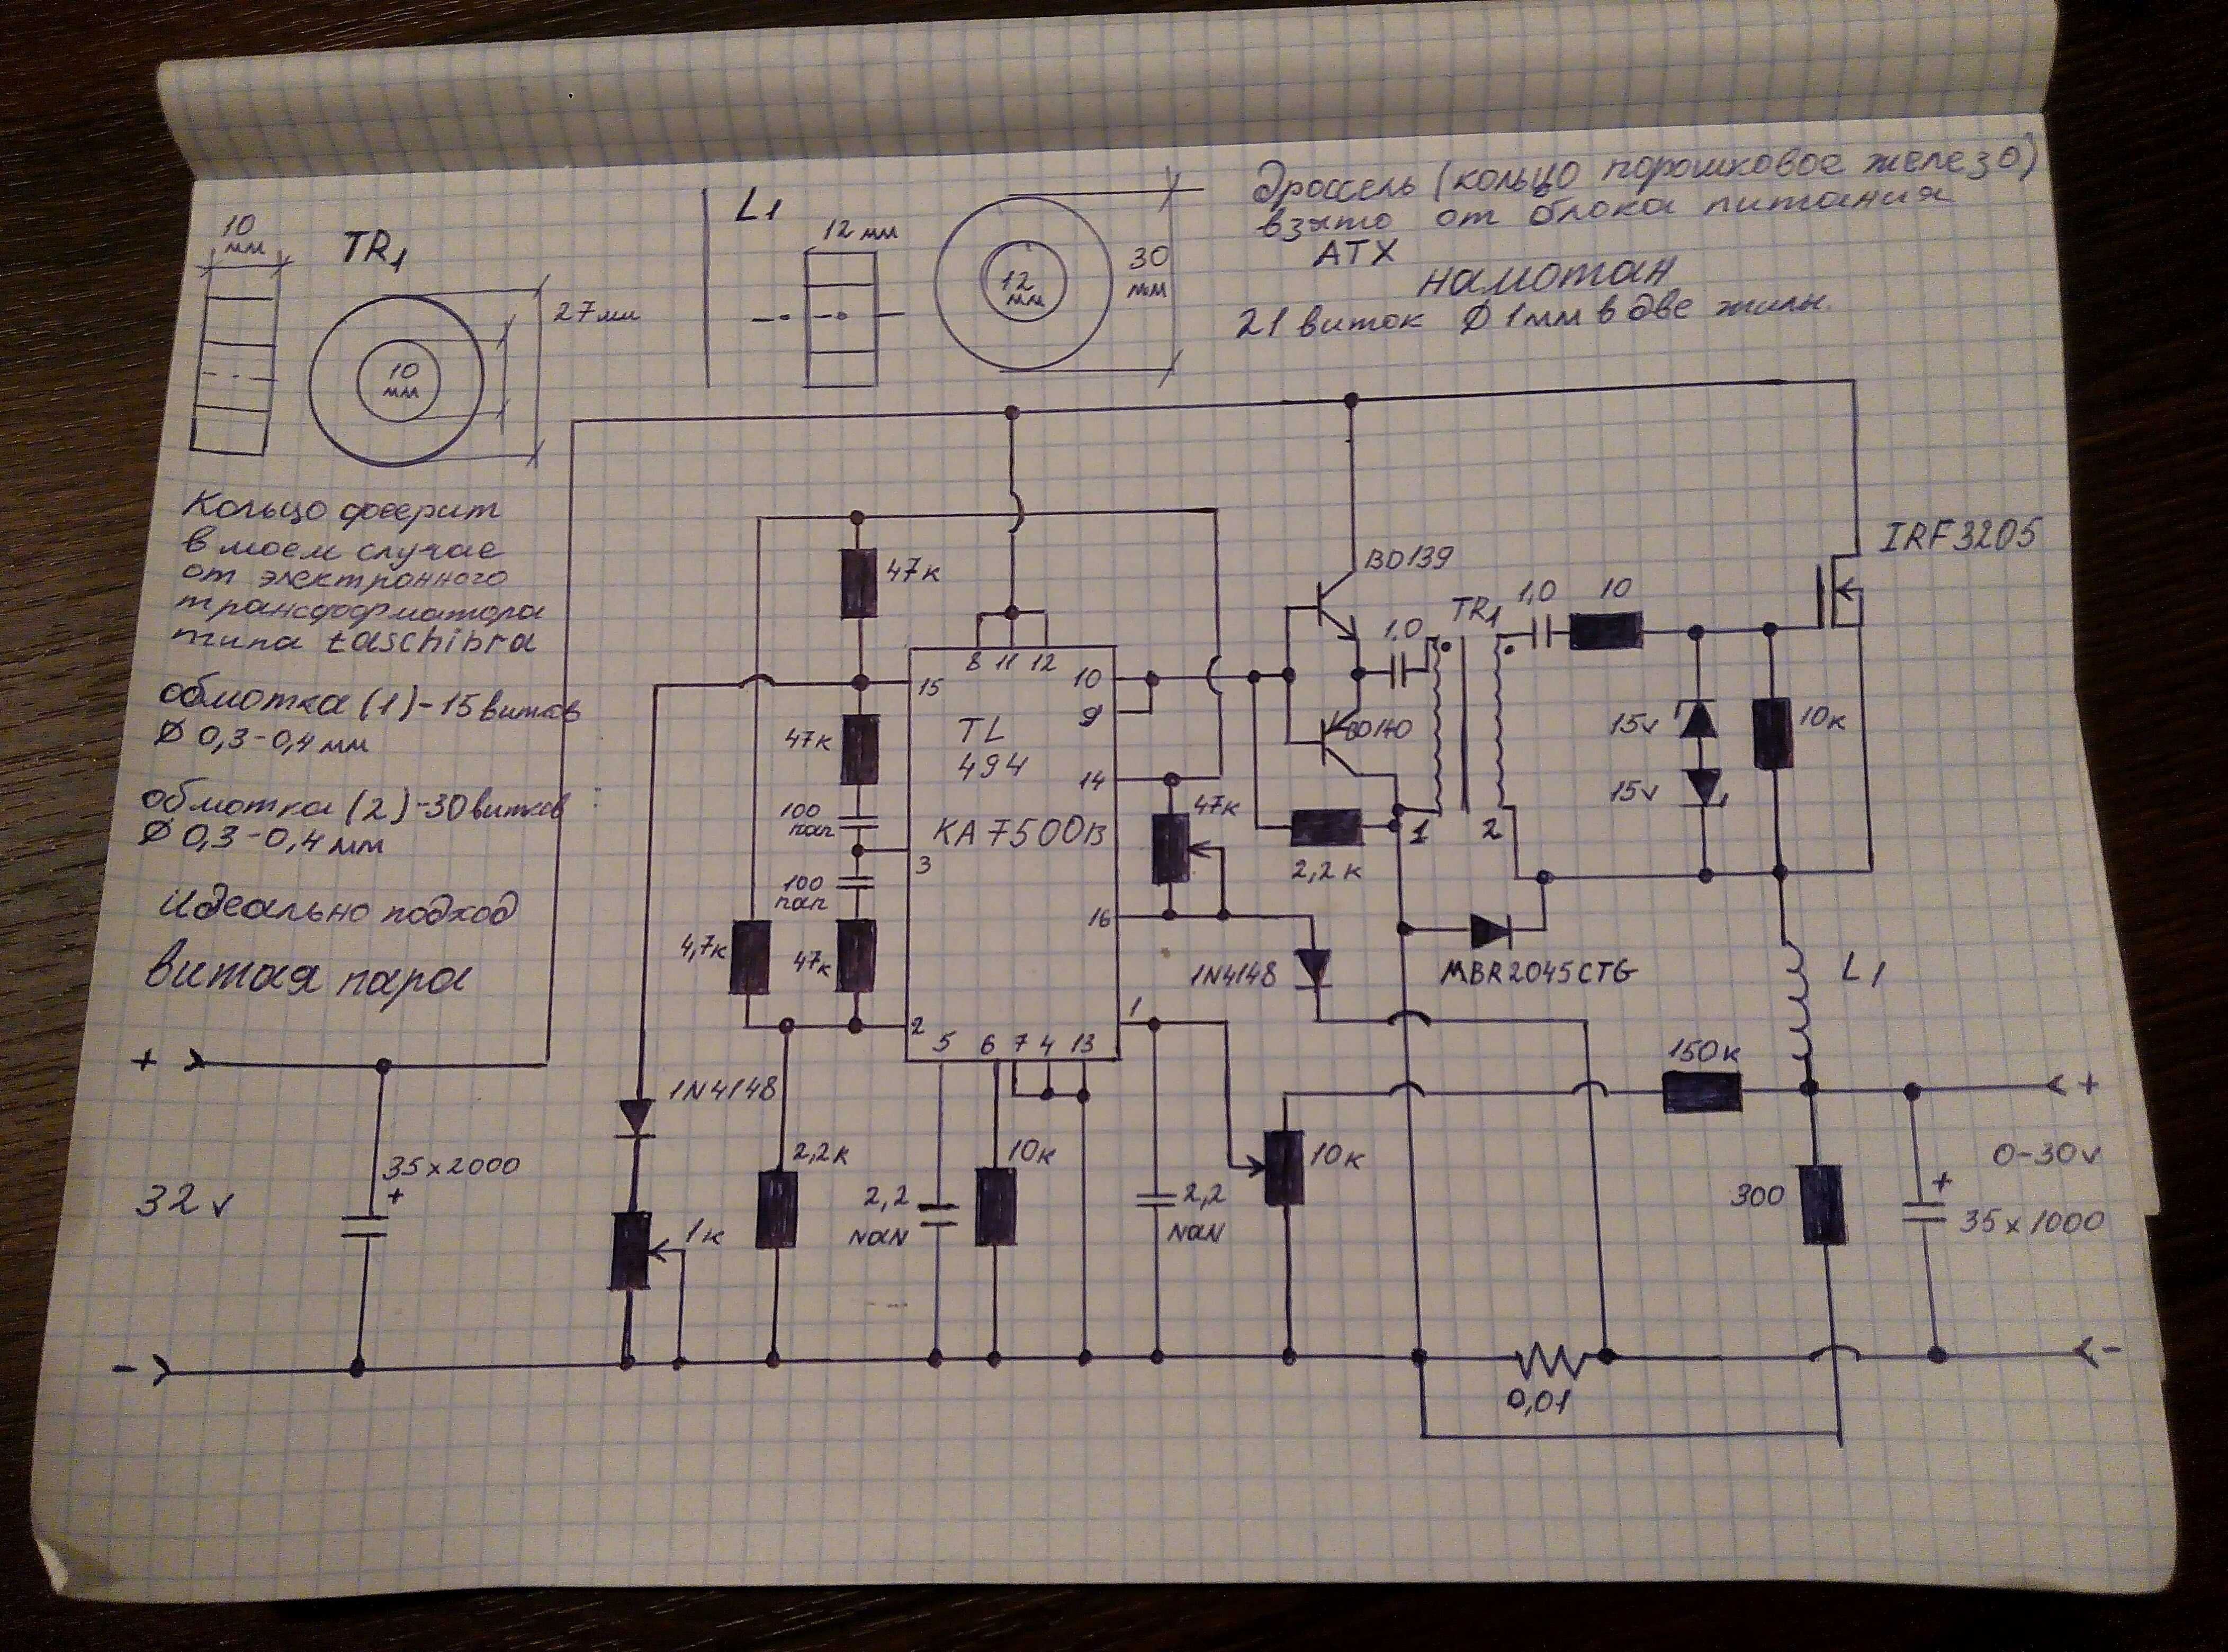 10
мм
TR1
10
мм
27мм
L1
12 мм
12
мм
30
мм
Дроссель (кольцо порошковое железо)
взято от блока питания
ATX
намотан
21 виток Ø 1мм в две жилы.
Кольцо феррит
в моем случае
от электронного
трансформатора
типа taschibra
обмотка (1)-15 витков
Ø 0,3-0,4 мм
обмотка (2)-30 витков
Ø 0,3-0,4 мм
Идеально подход
витая пара
47к
BD139
IRF3205
1,0
TR1
1,0
10
8 11 12
15
10
9
TL
494
KA7500B
BD140
47к
15v
10к
15v
14
47к
100
пап
3
100
пап
2,2к
1
2
4,7к
47к
16
1N4148
MBR2045CTG
L1
2
1
5 6 7 4 13
150к
+
+
1N4148
32v
35x2000
+
1к
2,2к
2,2
NaN
10к
2,2
NaN
10к
300
0-30v
+
35x1000
-
0,01
-